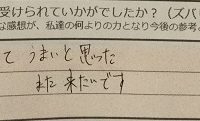 受けられていかがでしたか？（ズバ
な感想が、私達の何よりの力となり今後の参考
て うまいと思った
また来たいです